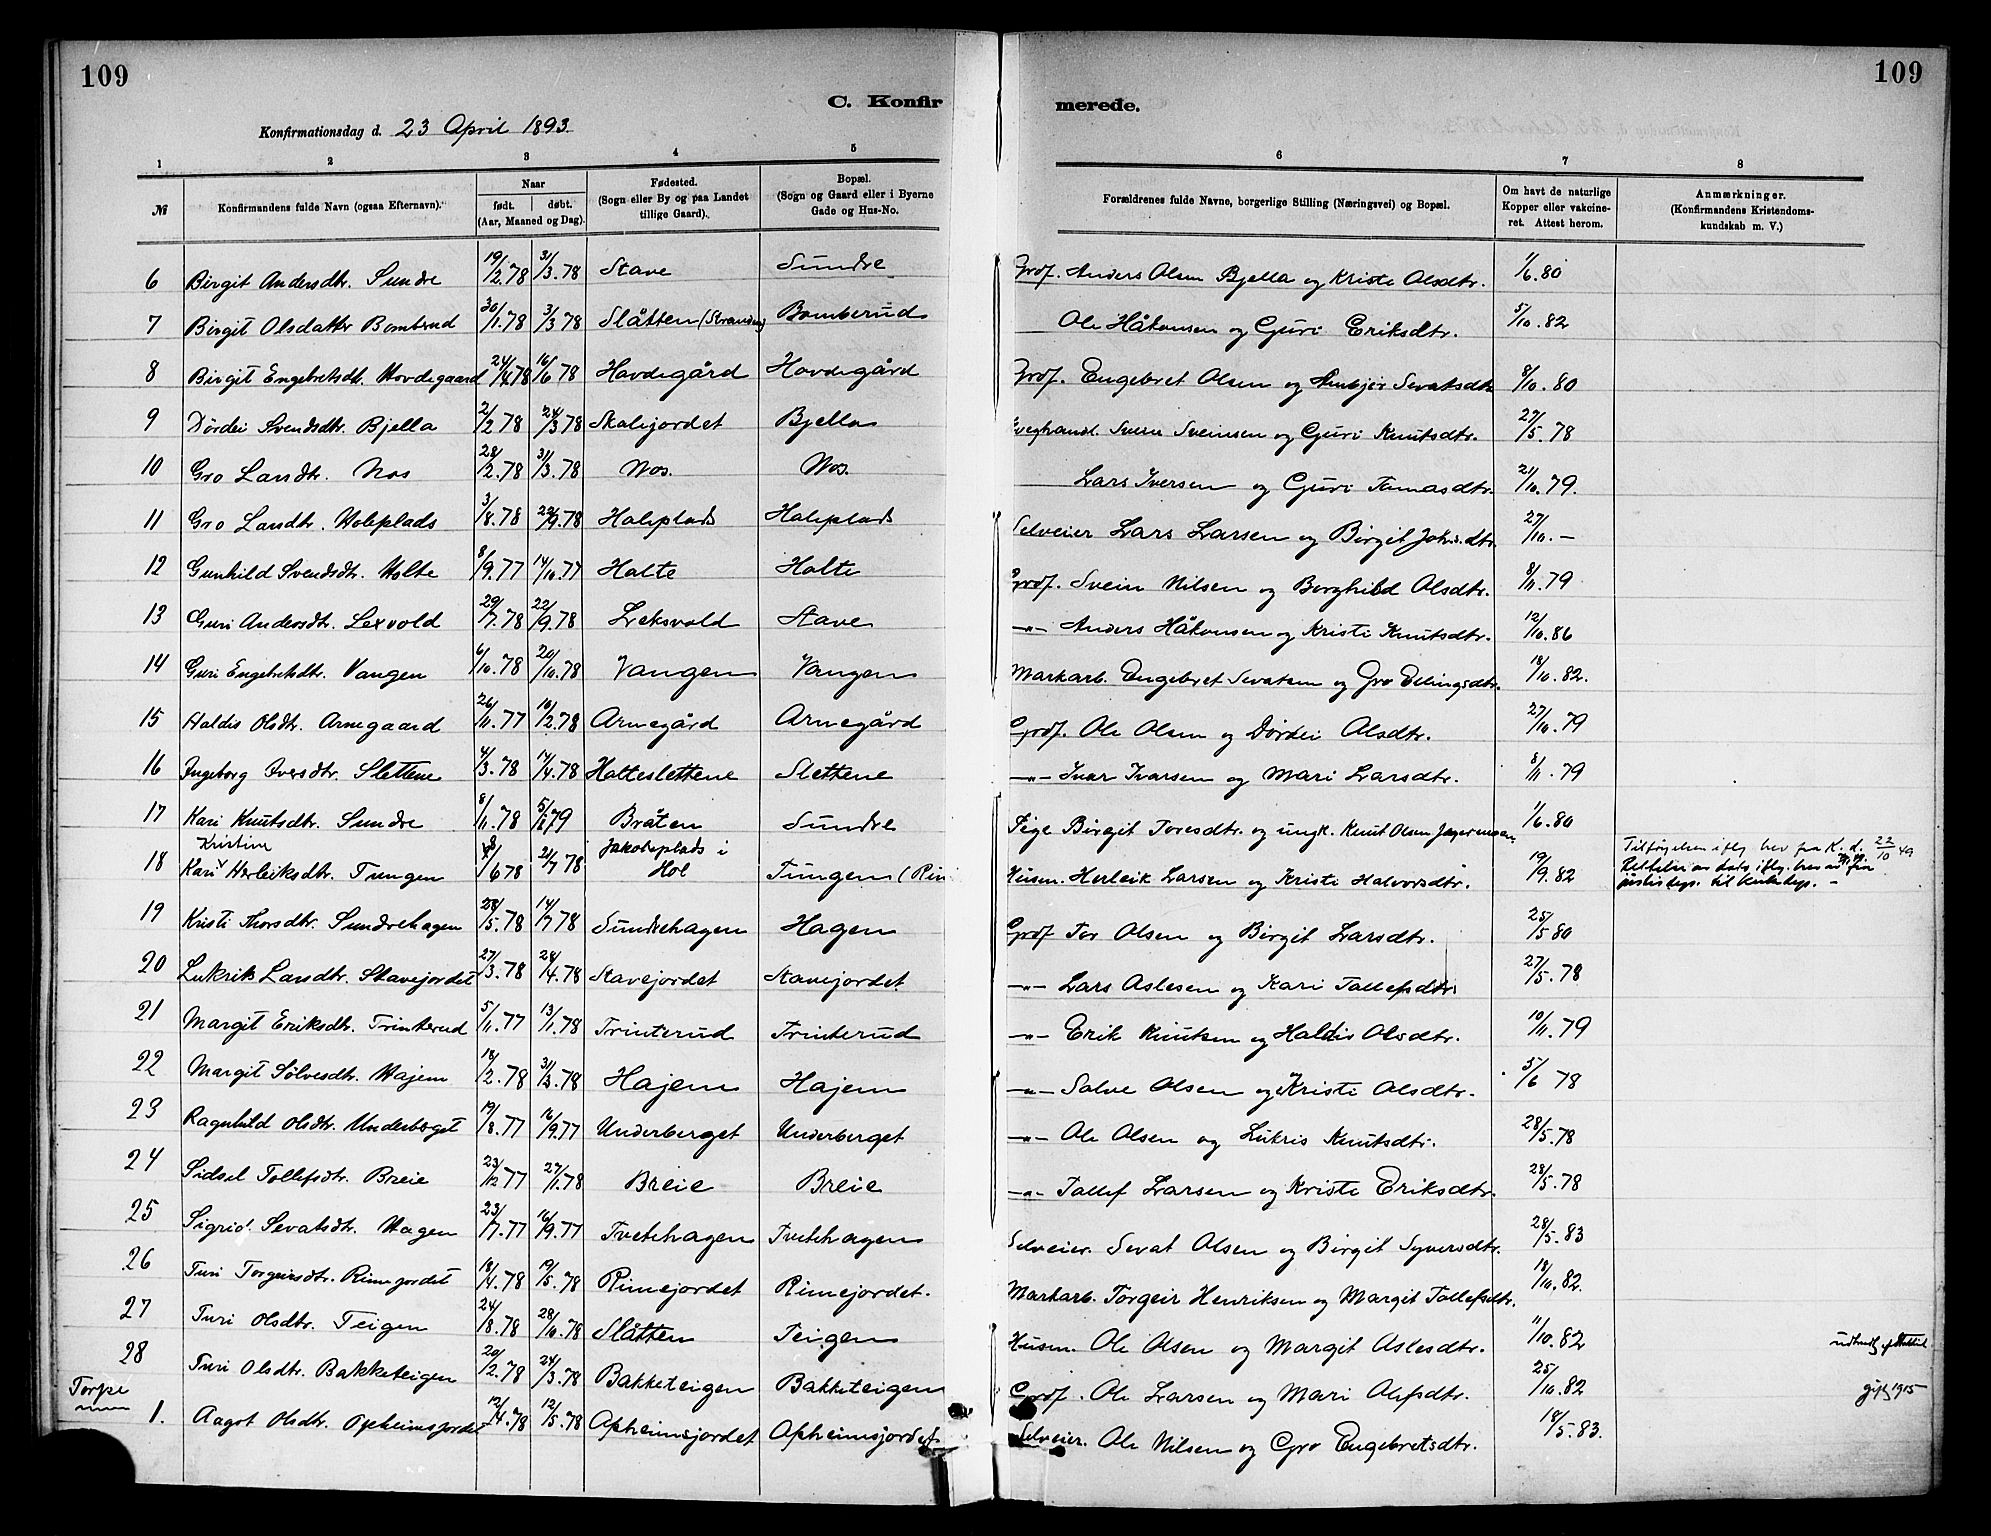 109
109
C. Konfir
merede.
Konfirmationsdag d. 23 April 1893.
1 2 3 4 5 6 7 8
№ Konfirmandens fulde Navn (ogsaa Efternavn). Naar født. døbt. (Aar, Maaned og Dag). Fødested. (Sogn eller By og paa Landet tillige Gaard). Bopæl. (Sogn og Gaard eller i Byerne Gade og Hus-No. Forældrenes fulde Navne, borgerlige Stilling (Næringsvei) og Bopæl. Om havt de naturlige Kopper eller vakcineret. Attest herom. Anmærkninger. (Konfirmandens Kristendomskundskab m. V.)
6 Birgit Andersdtr. Sundre 19/2.78 31/3.78 Stave Sundre Grdf. Anders Olsen Bjella og Kristi Olsdtr. 1/6.80
7 Birgit Olsdatter Bomberud 30/1.78 3/3 78 Slåtten (Stranden) Bomberud Ole Håkonsen og Guri Eriksdtr. 5/10.82
8 Birgit Engebretsdtr. Hovdegaard 24/4.78 16/6 78 Hovdegård Hovdegård Grdf. Engebret Olsen og Sevatsdtr 8/10.80
9 Dordei Svendsdtr. Bjella 2/2.78 24/3 78 Skalijordet Bjella Svein Sveinsen og Guri Knutsdtr. 27/5.78
10 Gro Larsdtr. Nos 28/2.78 31/3.78 Nos. Nos. Lars Iversen og Guri Tomasdtr. 21/10.79.
11 Gro Larsdtr. Holeplads 3/8.78 22/9.78 Holeplads Holeplads Selveier Lars Larsen og Birgit Johs.dtr. 27/10.–
12 Gunhild Svendsdtr. Holte 8/9.77 14/10.77 Holte Holte Grdf. Svein Nilsen og Borghild Olsdtr. 8/11.79
13 Guri Andersdtr. Lexvold 29/7.78 22/9.78 Leksvold Stave –„– Anders Håkonsen og Kristi Knutsdtr. 12/10.86
14 Guri Engebretsdtr. Vangen 6/10.78 20/10.78 Vangen Vangen Markarb. Engebret Sevatsen og Gro Ellingsdtr. 18/10.82.
15 Haldis Olsdtr. Arnegaard 26/11.77 10/2.78 Arnegård Arnegård Grdf. Ole Olsen og Dordei Olsdtr. 27/10.79
16 Ingeborg Iversdtr. Slettene 4/3.78 17/4.78 Holteslettene Slettene –„– Ivar Ivarsen og Mari Larsdtr. 8/11.79
17 Kari Knutsdtr. Sundre 8/11.78 Bråten Sundre Pige Birgit Toresdtr. og ungk. Knut Olsen Jegermoen 1/6.80
Kristine
18 Kari Herleiksdtr. Tungen 8/6 78 21/7 78 Jakobsplads i Hol Tungen (Rin Husm. Herleik Larsen og Kristi Halvorsdtr. 19/9.82 Tilføyelsen iflg. brev fra K. d. 22/10 49
Rettelse av dato iflg. brev fra justisdep. til Kirkedep. –
19 Kristi Thorsdtr. Sundrehagen 28/5.78 14/7 78 Sundrehagen Hagen Grdf Tor Olsen og Birgit Larsdtr. 25/5 80
20 Lukris Larsdtr. Stavejordet 27/3.78 28/4.78 Stavejordet Stavejordet –„– Lars Aslesen og Kari Tollefsdtr. 27/5.78
21 Margit Eriksdtr. Trinterud 5/11.77 13/1.78 Trinterud Trinterud –„– Erik Knutsen og Haldis Olsdtr. 10/11.79
22 Margit Sølvesdtr. Hajem 18/2.78 31/3.78 Hajem Hajem –„– Solve Olsen og Kristi Olsdtr. 5/6 78
23 Ragnhild Olsdtr. Underberget 19/8.77 16/9.77 Underberget Underberget –„– Ole Olsen og Lukris Knutsdtr. 28/5.78
24 Sidsel Tollefsdtr. Breie 23/12 77 27/1.78 Breie Breie –„– Tollef Larsen og Kristi Eriksdtr. 28/5.78
25 Sigrid Sevatsdtr. Hagen 23/7.77 16/9.77 Tvetehagen Tvetehagen Selveier. Sevat Olsen og Birgit Syversdtr. 28/5.83
26 Turi Torgeirsdtr. Rimejordet 18/4.78 19/5.78 Rimejordet Rimejordet. Markarb. Torgeir Henriksen og Margit Tollefsdtr. 18/10.82.
27 Turi Olsdtr. Teigen 24/8.78 28/10.78 Slåtten Teigen Husm. Ole Olsen og Margit Aslesdtr. 11/10.82
28 Turi Olsdtr. Bakketeigen 20/2.78 24/3.78 Bakketeigen Bakketeigen Grdf. Ole Larsen og Mari Olefsdtr. 25/10.82 gift 1915
Torpe
1. Aagot Olsdtr. Opheimsjordet 12/4.78 12/5.78 Opheimsjordet Opheimsjordet Selveier. Ole Nilsen og Gro Engebretsdtr. 18/5.83.